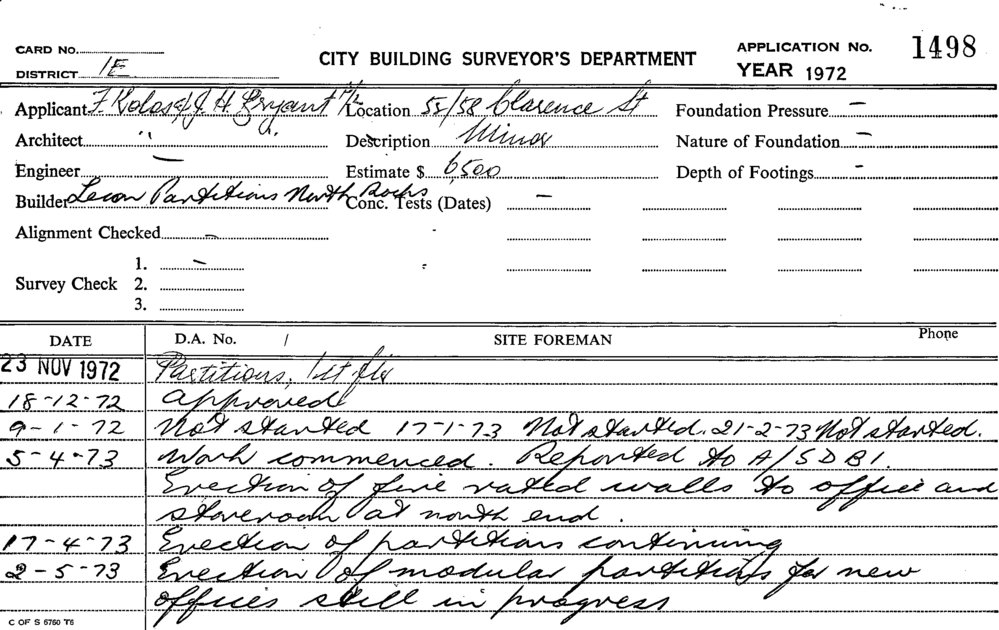 CARD No.
CITY BUILDING SURVEYOR'S DEPARTMENT
APPLICATION No. 1498
DISTRICT 1E
YEAR 1972
Applicant F. Kolos & J. H. Bryant P/L
Location 55/58 Clarence St
Foundation Pressure –
Architect "
Description Minor
Nature of Foundation –
Engineer –
Estimate $ 6,500
Depth of Footings –
Builder Lecon Partitions North Rocks
Conc. Tests (Dates) –
Alignment Checked –
Survey Check
1. –
2.
3.
DATE
D.A. No. /
SITE FOREMAN
Phone
23 NOV 1972 Partitions, 1st flr
18-12-72 Approved
9-1-72 Not started 17-1-73 Not started. 21-2-73 Not started.
5-4-73 Work commenced. Reported to A/SDBI.
Erection of fire rated walls to office and
storeroom at north end.
17-4-73 Erection of partitions continuing
2-5-73 Erection of modular partitions for new
offices still in progress
C OF S 6760 T6